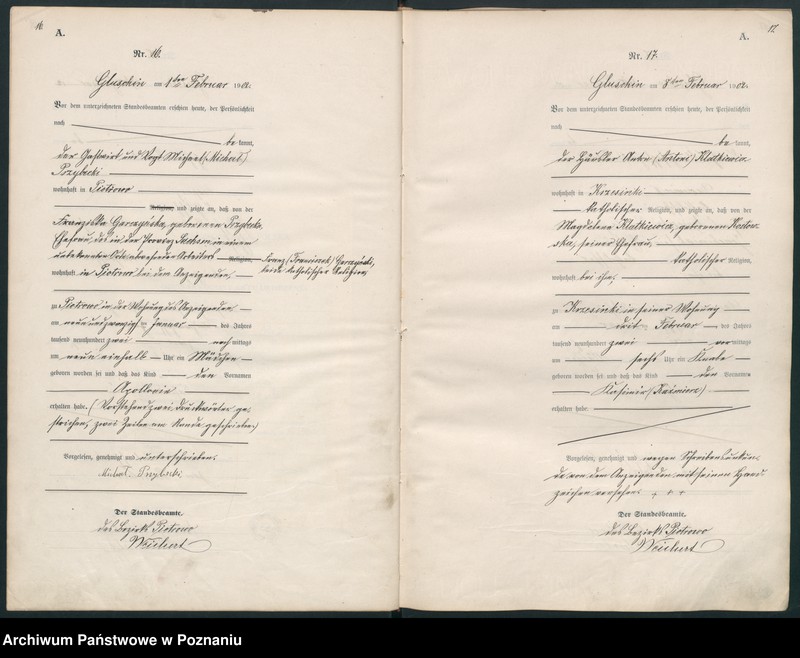 16.
A.
Nr. 16.
Gluschin am 1ten Februar 1902.
Vor dem unterzeichneten Standesbeamten erschien heute, der Persönlichkeit
nach
bekannt,
der Gastwirt und Vogt Michael (Michał)
Przybecki
wohnhaft in Piotrowo
Religion, und zeigte an, daß von der
Franziska Garczyńska, geborenen Przybecka,
Ehefrau, des in der Provinz Sachsen in einem
unbekannten Orte abwesenden Arbeiters Religion, Franz (Franciszek) Garczyński,
beide katholischer Religion,
wohnhaft in Piotrowo bei dem Anzeigenden,
zu Piotrowo in der Wohnung des Anzeigenden
am neunundzwanzigsten Januar des Jahres
tausend neunhundert zwei nachmittags
um neun einhalb Uhr ein Mädchen
geboren worden sei und daß das Kind den Vornamen
Apollonia
erhalten habe. (Vorstehend zwei Druckwörter ge-
strichen, zwei Zeilen am Rande geschrieben)
Vorgelesen, genehmigt und unterschrieben.
Michał
Der Standesbeamte.
des Bezirks Piotrowo
Weichert
17.
A.
Nr. 17.
Gluschin am 8ten Februar 1902.
Vor dem unterzeichneten Standesbeamten erschien heute, der Persönlichkeit
nach
bekannt,
der Häusler Anton (Antoni) Klatkiewicz
wohnhaft in Krzesinki
katholischer Religion, und zeigte an, daß von der
Magdalena Klatkiewicz, geborenen
seiner Ehefrau,
katholischer Religion,
wohnhaft bei ihm,
zu Krzesinki in seiner Wohnung
am Februar des Jahres
tausend neunhundert zwei vormittags
um sechs Uhr ein Knabe
geboren worden sei und daß das Kind den Vornamen
Kasimir (Kazimierz)
erhalten habe.
Vorgelesen, genehmigt und wegen Schreibensunkun-
de von dem Anzeigenden mit seinem Hand-
zeichen versehen. + + +
Der Standesbeamte.
des Bezirks Piotrowo
Weichert
Archiwum Państwowe w Poznaniu